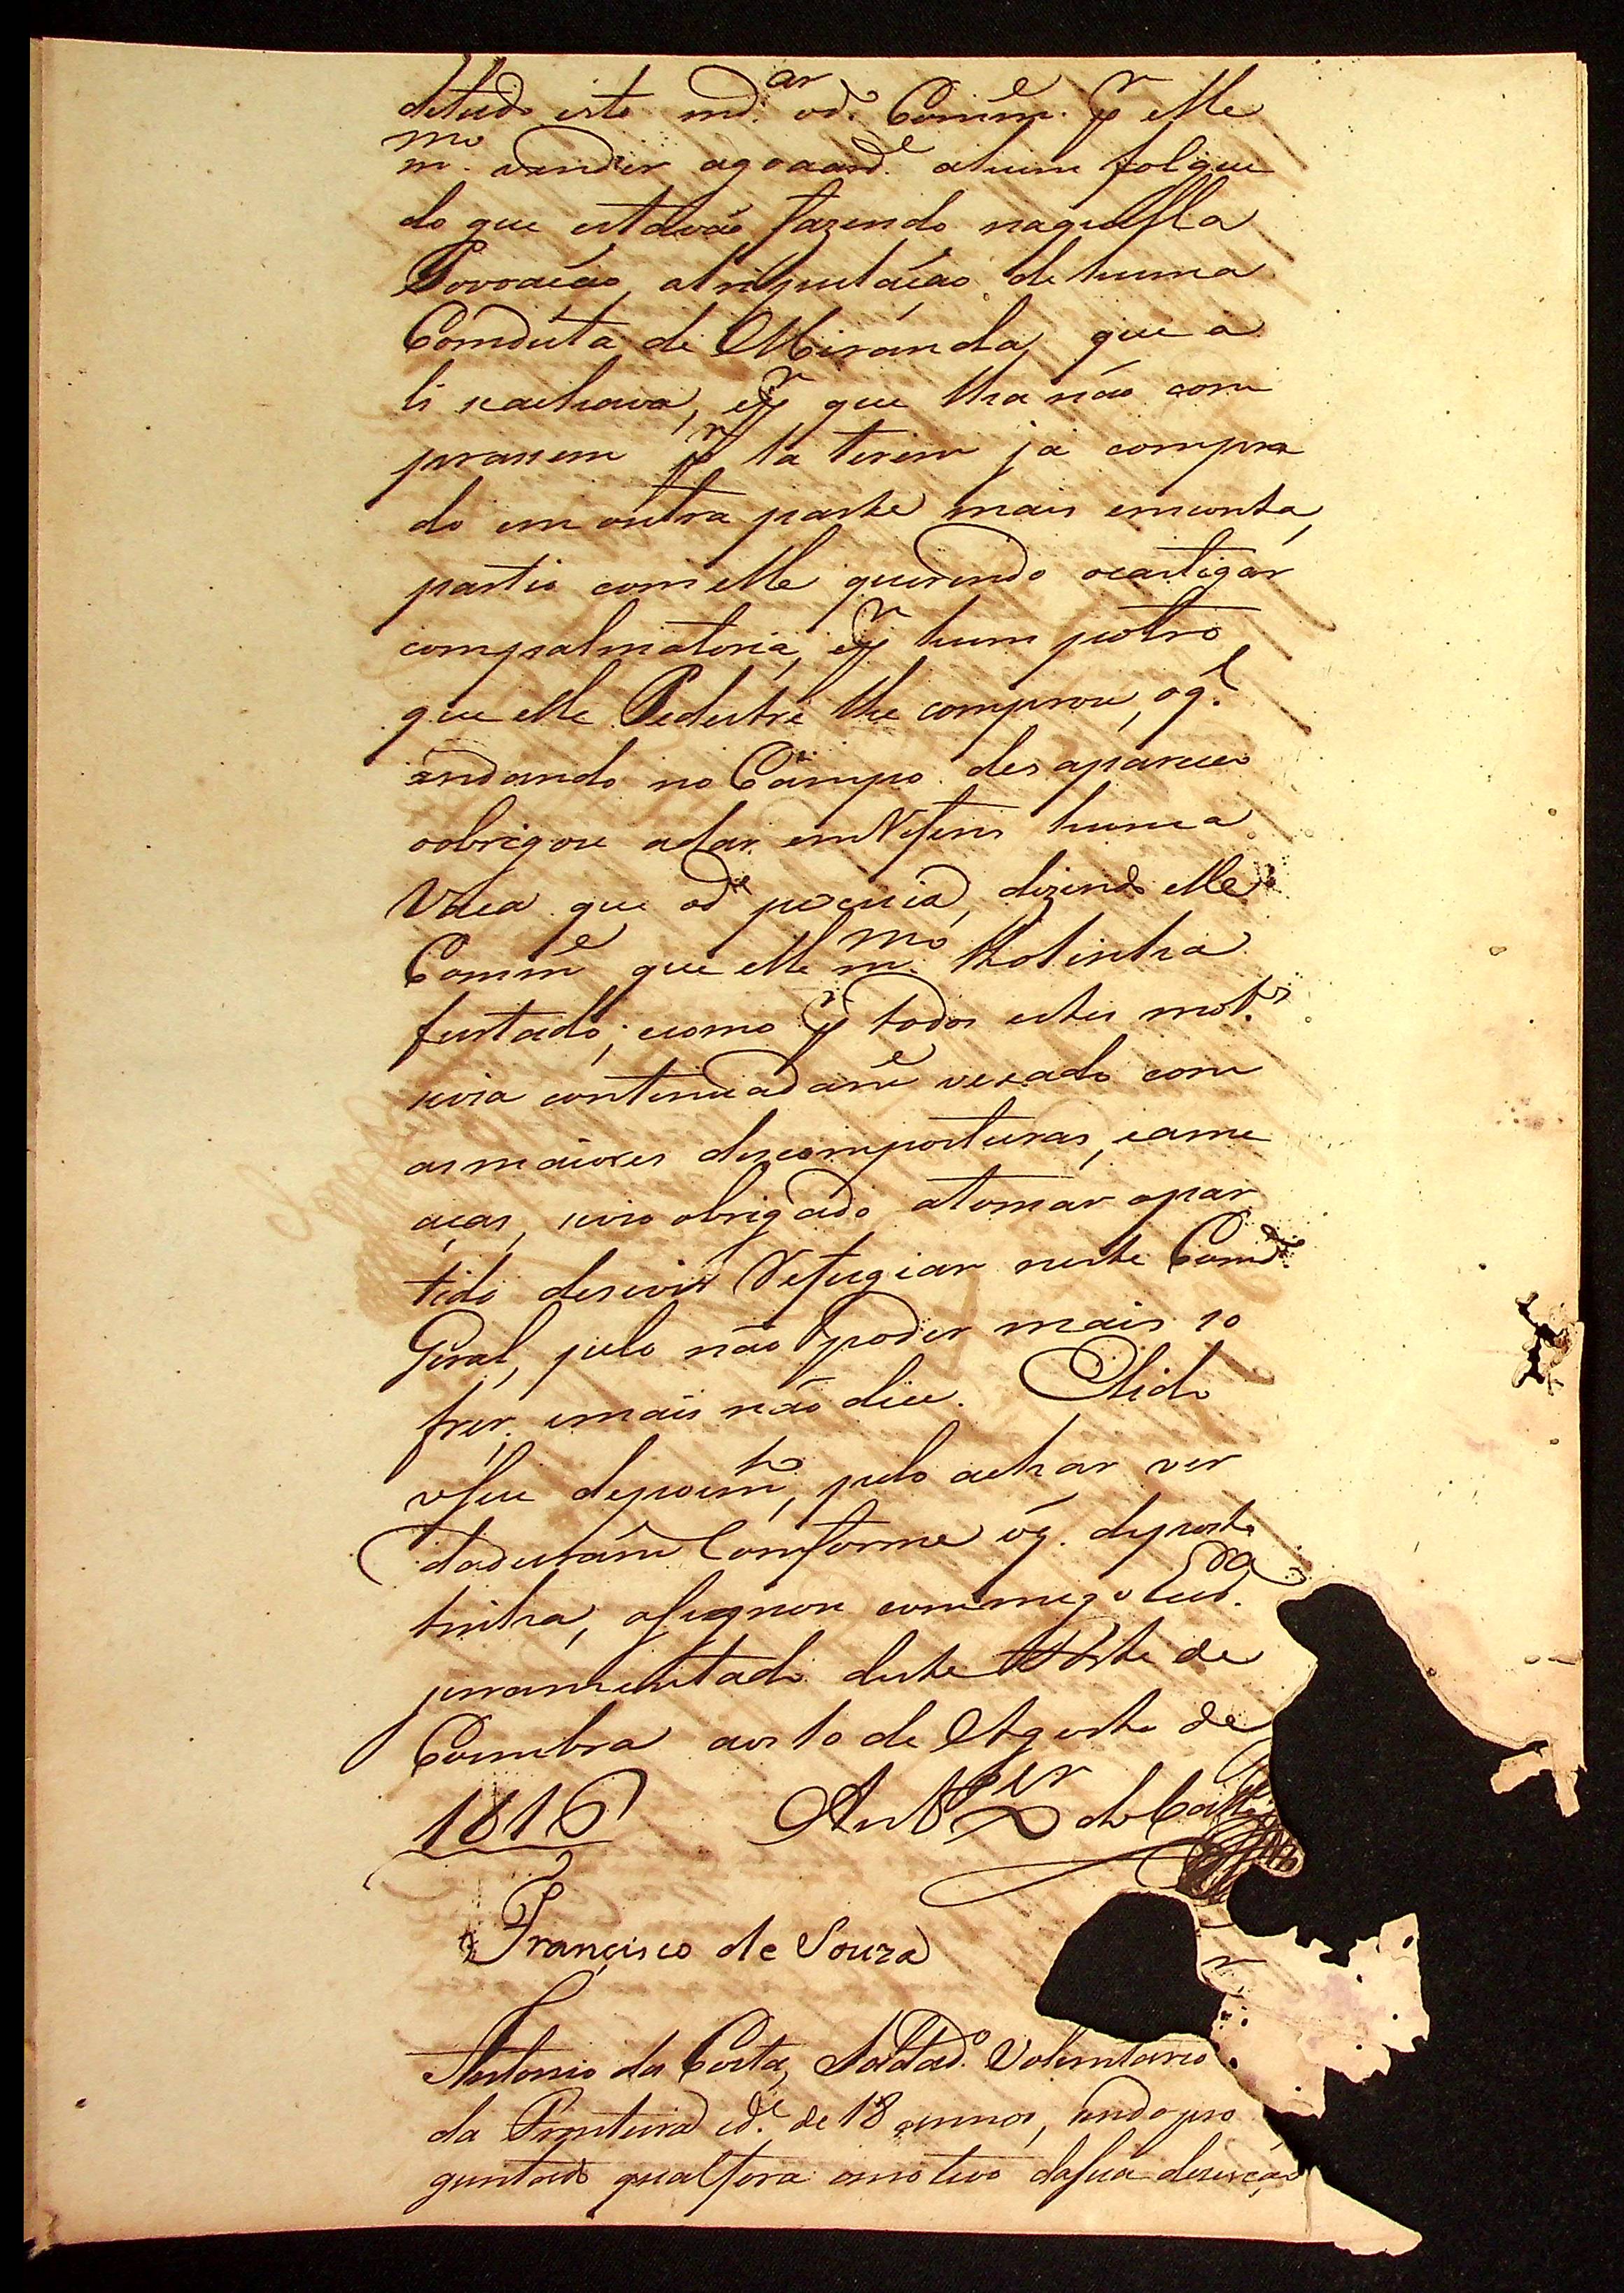 detudo isto md.ar od.o Comm.e pr elle
m.mo vender agoaard.e ahum folgue
do que estavão fazendo naquella
Povoação, atripulação de huma
Conducta de Miranda, que a
li seachava, epr que lha não com
prassem pr ta terem ja compra
do em outra parte mais emconta,
partio com elle querendo ocastigar
compalmatoria, epr hum potro
que elle Pedestre lhe comprou, oq.l
andando no Campo desapareceo
oobrigou adar em Refens huma
Vaca que od.e pocuia, dizendo elle
Comm.e que elle m.mo lhotinha
furtado; ecomo pr todos estes mot.s
sivia continuadam.e vexado com
asmaiores descomposturas, eame
aças, sivio obrigado atomar opar
tido desevir Refugiar neste Comd.o
Geral, pelo não poder mais so
frer, emais não dice. Elido
oseu depoim.to, pelo achar ver
dadeiram.e Conforme oq. deposto
tinha, asignou commigo Cud.
juramentado deste Forte de
Coimbra aos 10 de Agosto de
1816 Ant.o de
Francisco de Souza
Antonio da Costa, Soldad.o Voluntario
da Fronteira id.e de 18 annos, sendo pro
guntado qual fora omotivo dasua deserção